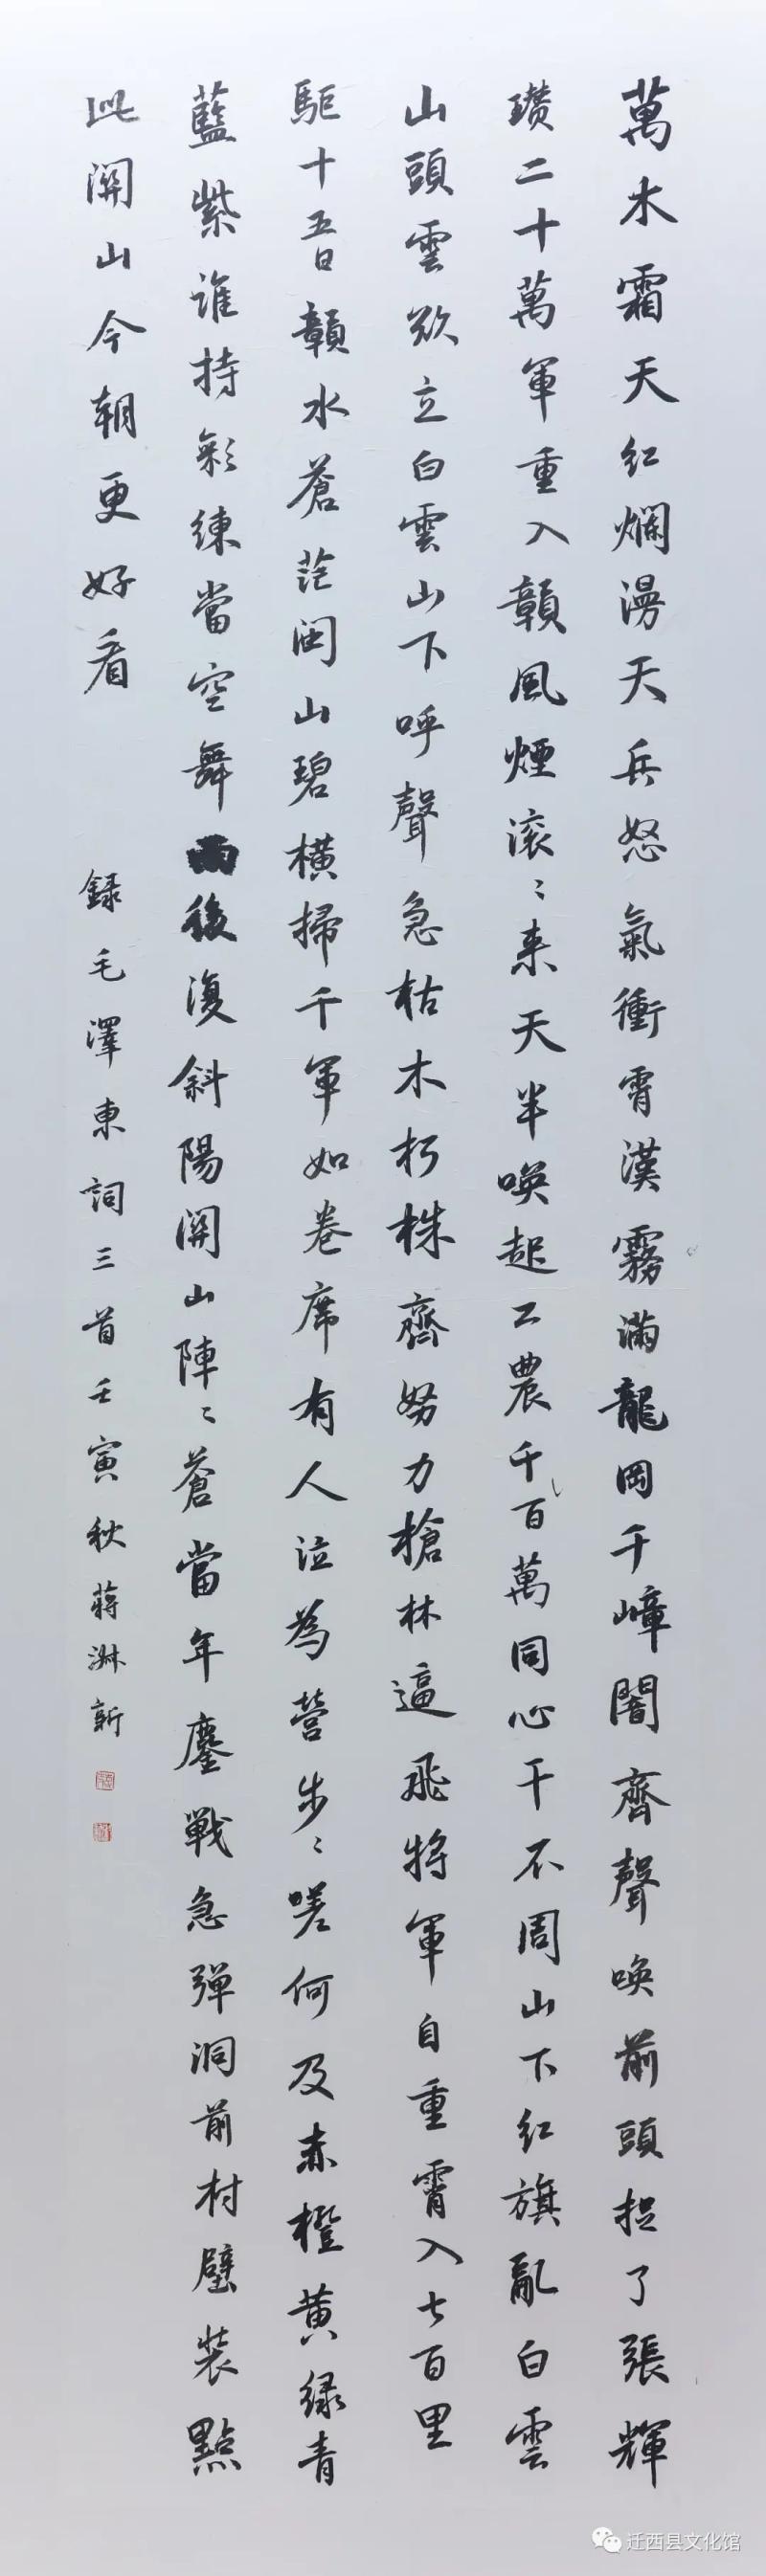 萬木霜天紅爛漫天兵怒氣衝霄漢霧滿龍岡千嶂闇齊聲喚前頭捉了張輝
瓚二十萬軍重入贛風煙滾〻来天半喚起工農千百萬同心干不周山下紅旗亂白雲
山頭雲欲立白雲山下呼聲急枯木朽株齊努力槍林逼飛將軍自重霄入七百里
驅十五日贛水蒼茫閩山碧橫掃千軍如卷席有人泣為營步〻嗟何及赤橙黄緑青
藍紫誰持彩練當空舞雨後復斜陽關山陣〻蒼當年鏖戰急弹洞前村壁装點
此關山今朝更好看
録毛澤東詞三首壬寅秋蔣淋新
迁西县文化馆